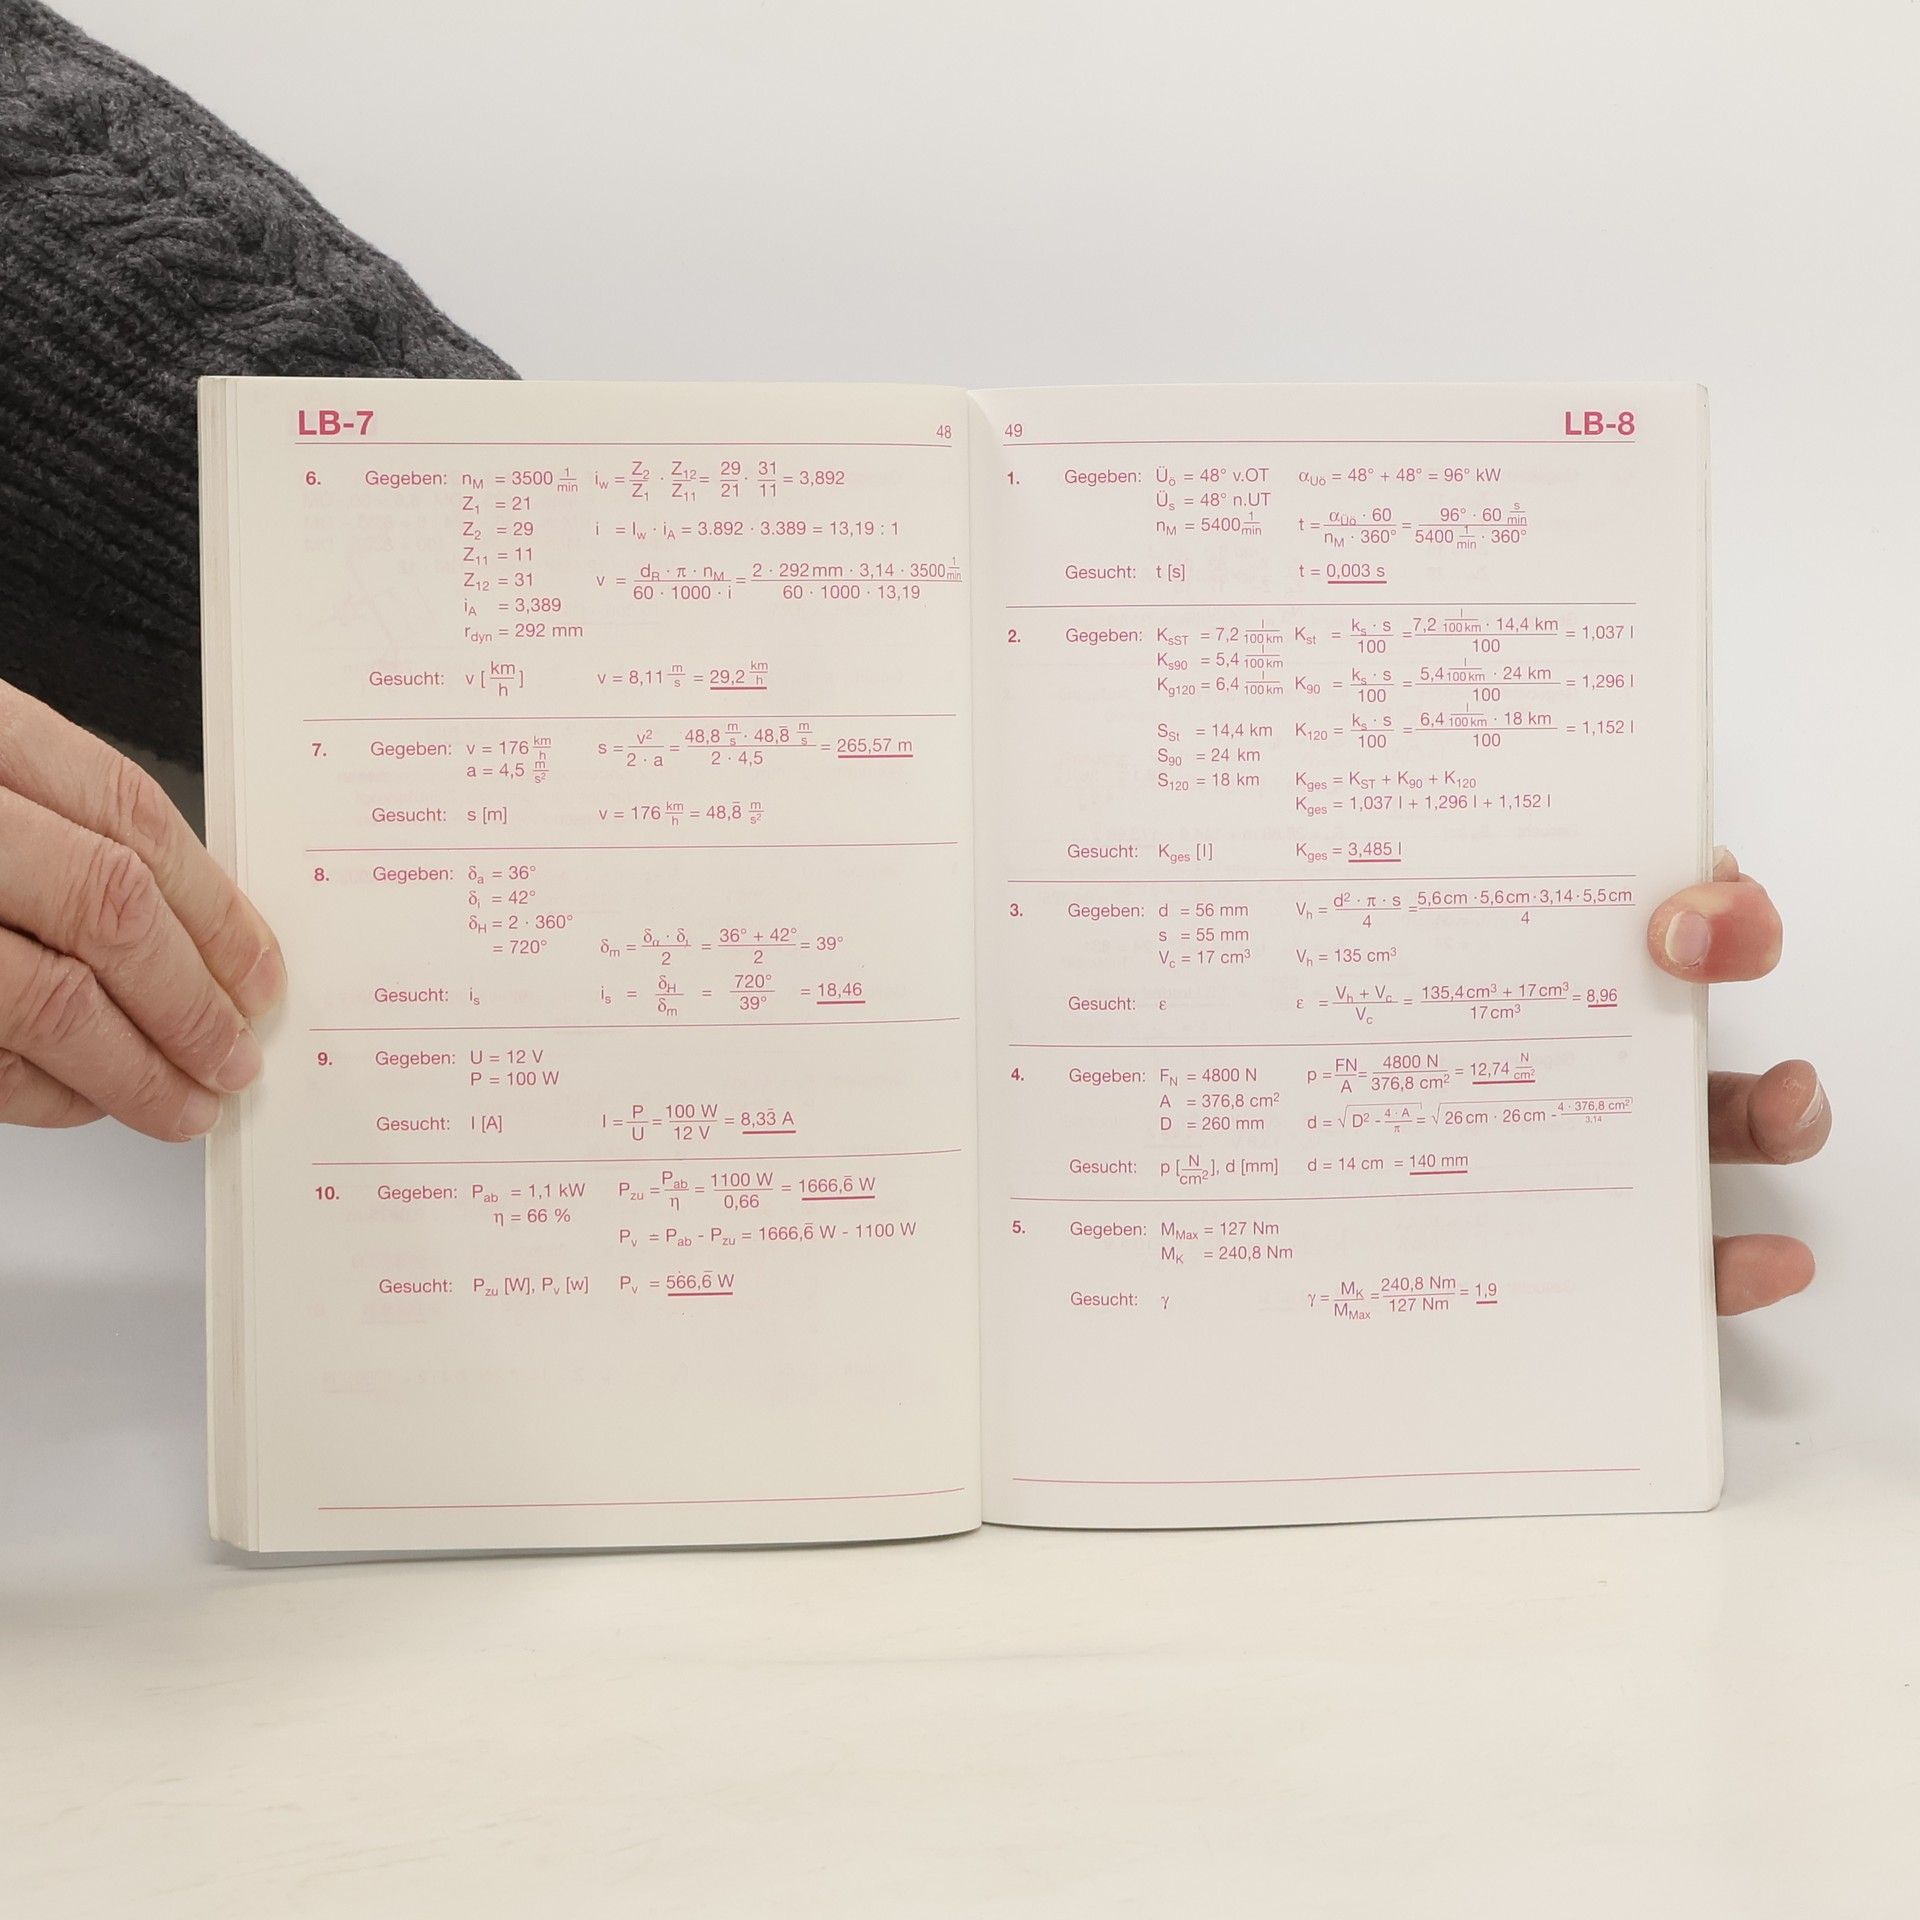 LB-7 48
6. Gegeben: n_M = 3500 1/min i_w = Z_2/Z_1 · Z_12/Z_11 = 29/21 · 31/11 = 3,892
Z_1 = 21
Z_2 = 29 i = I_w · i_A = 3.892 · 3.389 = 13,19 : 1
Z_11 = 11
Z_12 = 31 v = d_R · π · n_M / 60 · 1000 · i = 2 · 292 mm · 3,14 · 3500 1/min / 60 · 1000 · 13,19
i_A = 3,389
r_dyn = 292 mm
Gesucht: v [km/h] v = 8,11 m/s = 29,2 km/h
7. Gegeben: v = 176 km/h s = v²/2 · a = 48,8 m/s · 48,8̄ m/s / 2 · 4,5 = 265,57 m
a = 4,5 m/s²
Gesucht: s [m] v = 176 km/h = 48,8̄ m/s²
8. Gegeben: δ_a = 36°
δ_i = 42°
δ_H = 2 · 360°
= 720° δ_m = δ_a · δ_i / 2 = 36° + 42° / 2 = 39°
Gesucht: i_s i_s = δ_H/δ_m = 720°/39° = 18,46
9. Gegeben: U = 12 V
P = 100 W
Gesucht: I [A] I = P/U = 100 W/12 V = 8,33̄ A
10. Gegeben: P_ab = 1,1 kW P_zu = P_ab/η = 1100 W/0,66 = 1666,6̄ W
η = 66 %
P_v = P_ab - P_zu = 1666,6̄ W - 1100 W
Gesucht: P_zu [W], P_v [w] P_v = 566,6̄ W
49 LB-8
1. Gegeben: Ü_ö = 48° v.OT α_Üö = 48° + 48° = 96° kW
Ü_s = 48° n.UT
n_M = 5400 1/min t = α_Üö · 60 / n_M · 360° = 96° · 60 s/min / 5400 1/min · 360°
Gesucht: t [s] t = 0,003 s
2. Gegeben: K_sST = 7,2 l/100 km K_st = k_s · s/100 = 7,2 l/100 km · 14,4 km / 100 = 1,037 l
K_s90 = 5,4 l/100 km
K_g120 = 6,4 l/100 km K_90 = k_s · s/100 = 5,4 l/100 km · 24 km / 100 = 1,296 l
S_St = 14,4 km K_120 = k_s · s/100 = 6,4 l/100 km · 18 km / 100 = 1,152 l
S_90 = 24 km
S_120 = 18 km K_ges = K_ST + K_90 + K_120
K_ges = 1,037 l + 1,296 l + 1,152 l
Gesucht: K_ges [l] K_ges = 3,485 l
3. Gegeben: d = 56 mm V_h = d² · π · s / 4 = 5,6 cm · 5,6 cm · 3,14 · 5,5 cm / 4
s = 55 mm
V_c = 17 cm³ V_h = 135 cm³
Gesucht: ε ε = V_h + V_c / V_c = 135,4 cm³ + 17 cm³ / 17 cm³ = 8,96
4. Gegeben: F_N = 4800 N p = FN/A = 4800 N/376,8 cm² = 12,74 N/cm²
A = 376,8 cm²
D = 260 mm d = √D² - 4 · A/π = √26 cm · 26 cm - 4 · 376,8 cm²/3,14
Gesucht: p [N/cm²], d [mm] d = 14 cm = 140 mm
5. Gegeben: M_Max = 127 Nm
M_K = 240,8 Nm
Gesucht: γ γ = M_K/M_Max = 240,8 Nm/127 Nm = 1,9